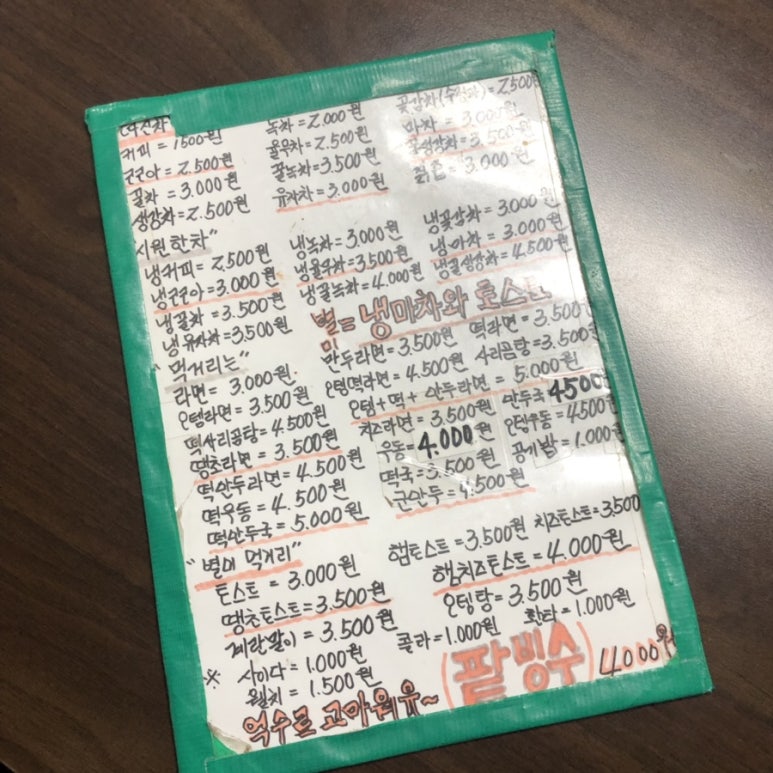 커피 = 1500원 녹차 = 2.000원 곶감차(수정과) = 2.500원
코코아 = 2.500원 율무차 = 2.500원 마차 = 3.000원
꿀차 = 3.000원 꿀녹차 = 3.500원 꿀생강차 = 3.500원
생강차 = 2.500원 유자차 = 3.000원 = 3.000원
"시원한차"
냉커피 = 2.500원 냉녹차 = 3.000원 냉곶감차 = 3.000원
냉코코아 = 3.000원 냉율무차 = 3.500원 냉마차 = 3.000원
냉꿀차 = 3.500원 냉꿀녹차 = 4.000원 냉꿀생강차 = 4.500원
냉유자차 = 3.500원 별미 = 냉마차와 토스트
"먹거리는"
라면 = 3.000원. 만두라면 = 3.500원 떡라면 = 3.500원
오뎅라면 = 3.500원 오뎅떡라면 = 4.500원 사리곰탕 = 3.500원
떡사리곰탕 = 4.500원 오뎅+떡+만두라면 = 5.000원
땡초라면 = 3.500원 치즈라면 = 3.500원 만두국 4500
떡만두라면 = 4.500원 우동 = 4.000원 오뎅우동 = 4500원
떡우동 = 4.500원 떡국 = 3.500원 공기밥 = 1.000원
떡만두국 = 5.000원 군만두 = 4.500원
"별미 먹거리"
토스트 = 3.000원 햄토스트 = 3.500원 치즈토스트 = 3.500
땡초토스트 = 3.500원 햄치즈토스트 = 4.000원
계란말이 = 3.500원 오뎅탕 = 3.500원
※ 사이다 = 1.000원 콜라 = 1.000원 환타 = 1.000원
웰치 = 1.500원 (팥빙수) 4000원
억수로 고마워유~